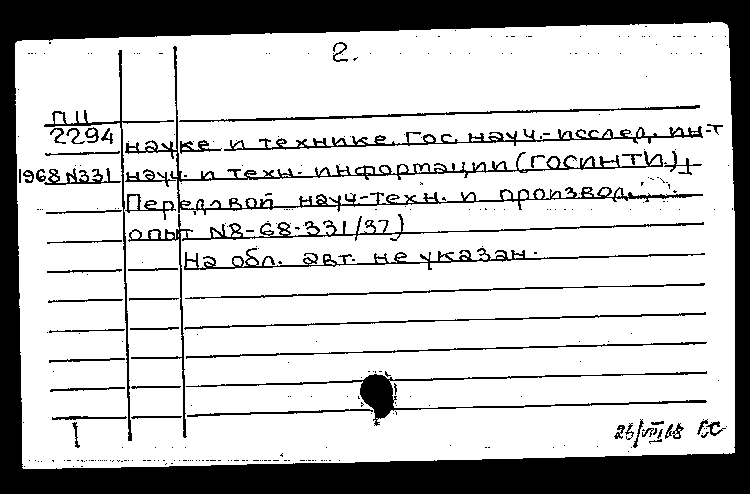 2.
П II
2294 науке и технике. Гос. науч.-исслед. ин-т
1968 N331 науч. и техн. информации (ГОСИНТИ).
Передовой науч-техн. и производ.
опыт N8-68-331/37)
На обл. авт. не указан.
26/VIII 68 СС